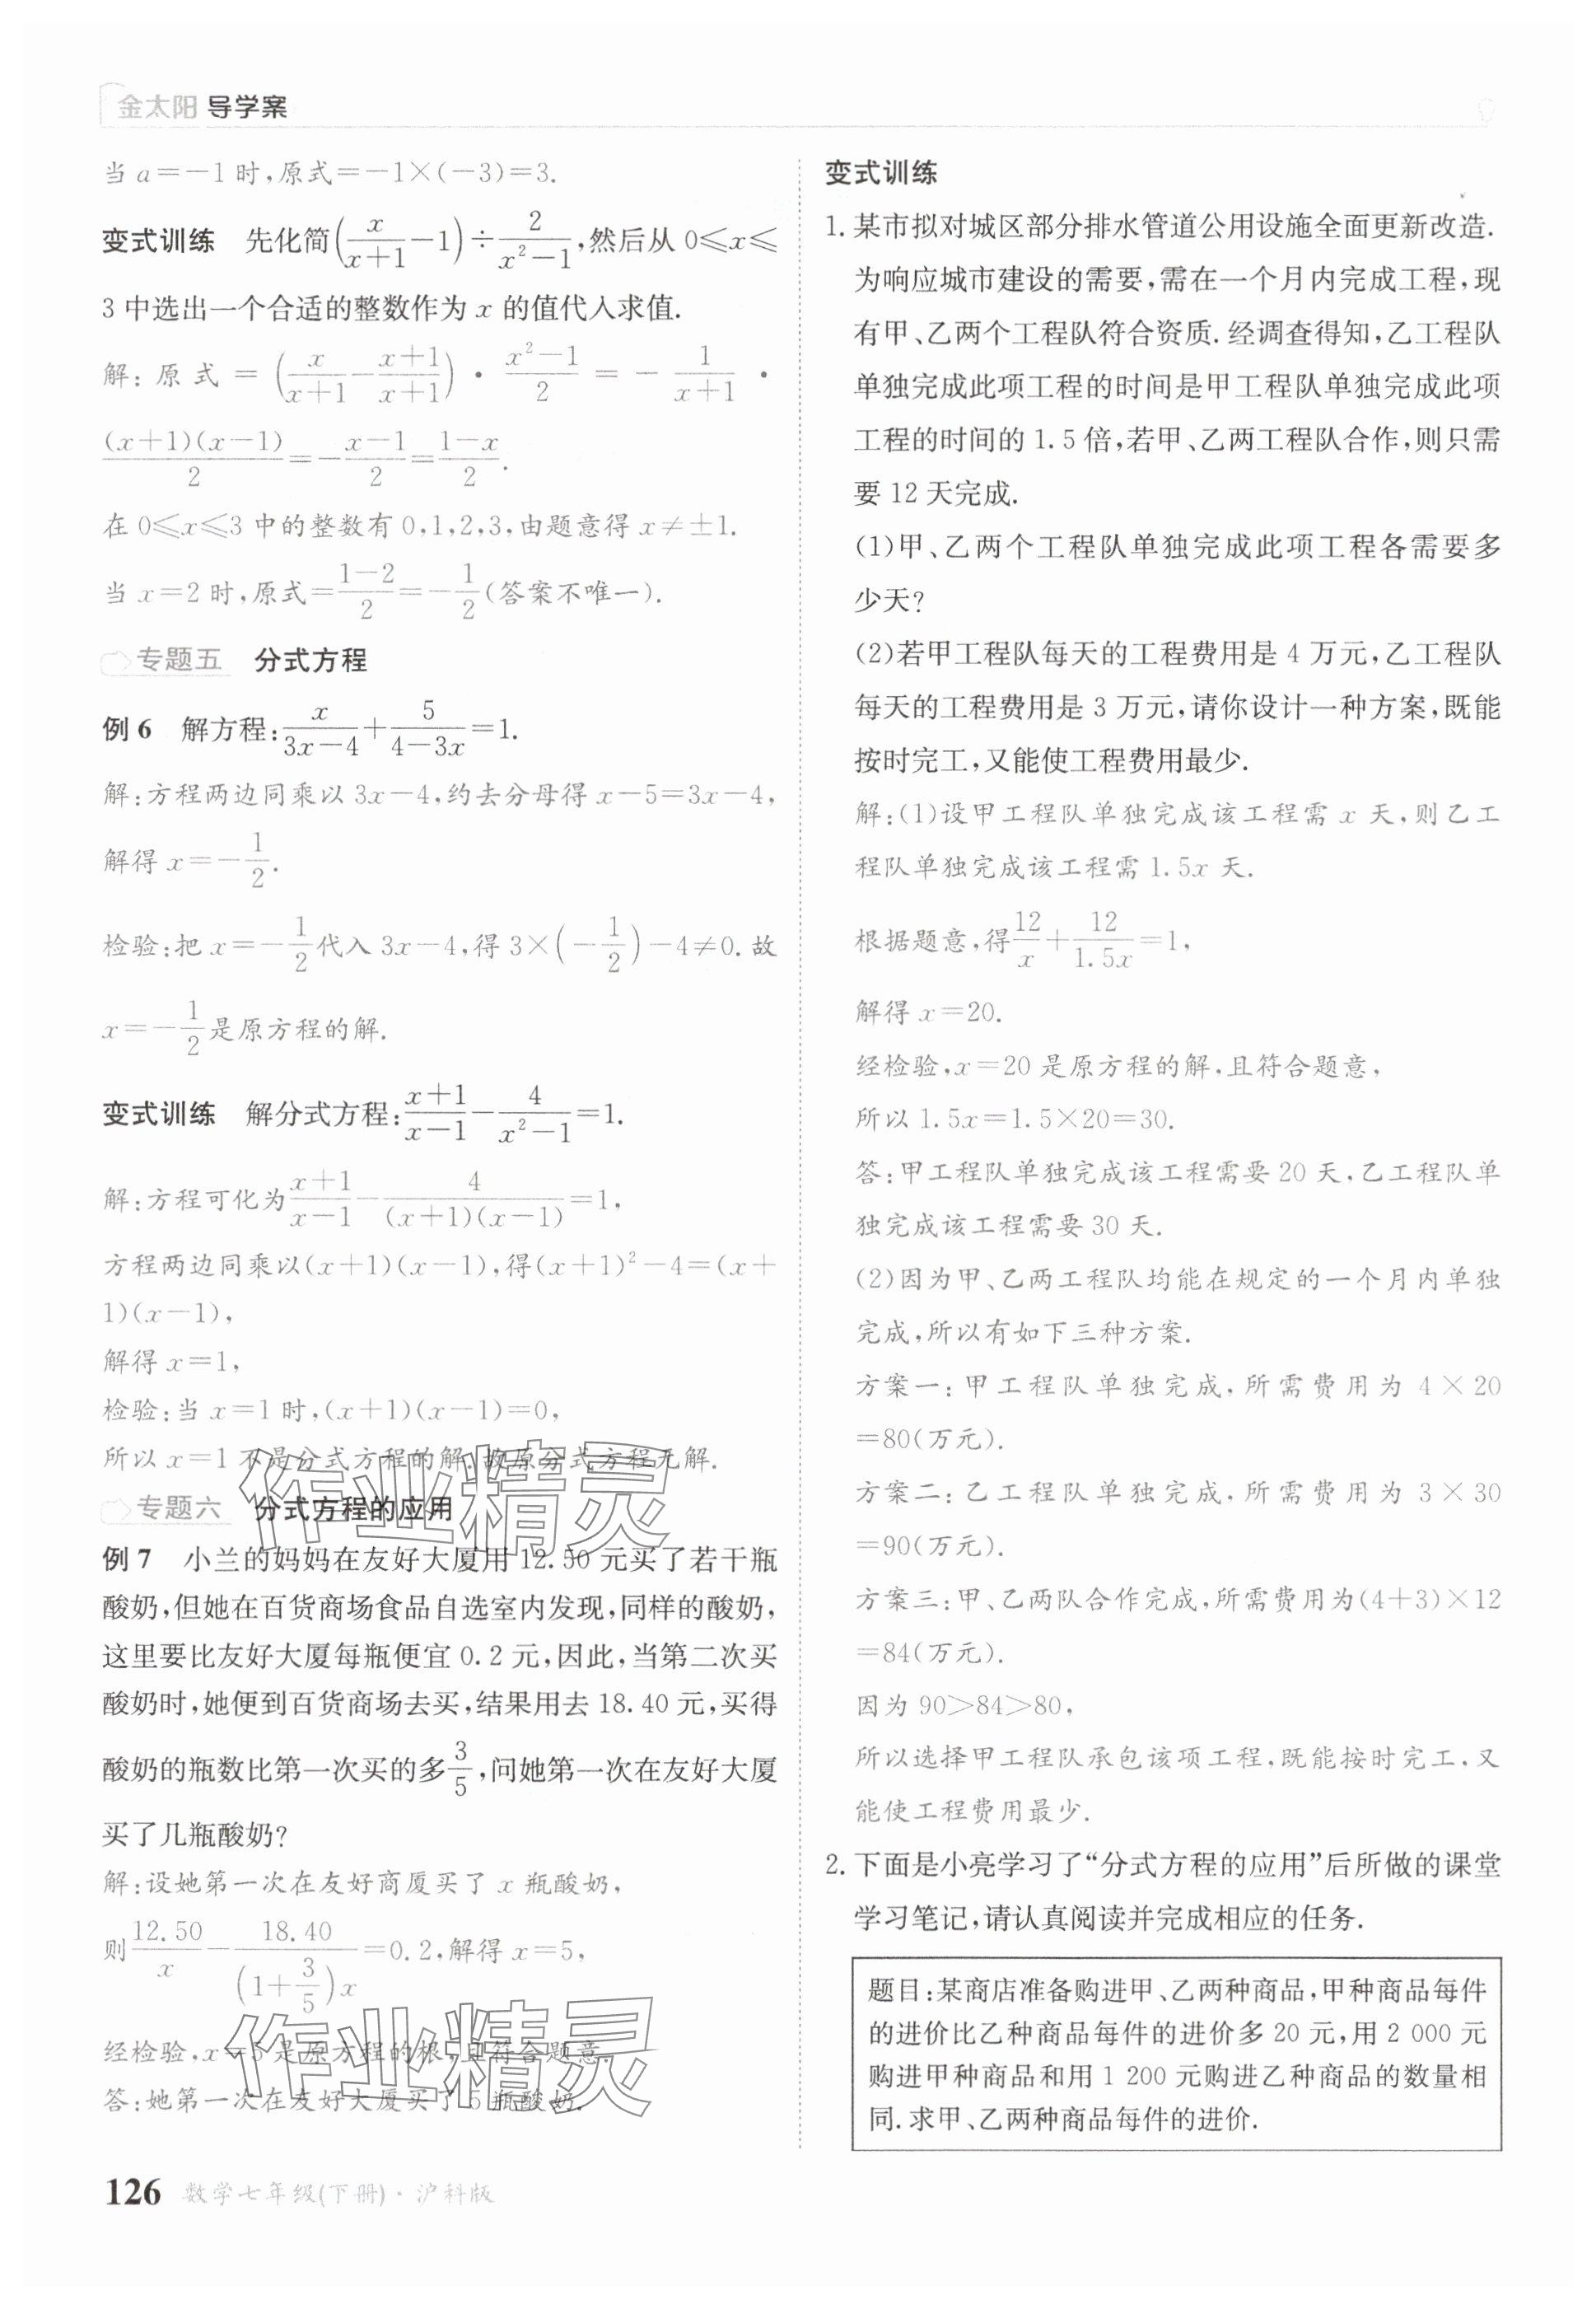 金太阳 导学案
当 a=-1 时,原式=-1×(-3)=3.
变式训练 先化简(x/(x+1)-1)÷2/(x²-1),然后从 0≤x≤
3 中选出一个合适的整数作为 x 的值代入求值.
解: 原式 = (x/(x+1)-(x+1)/(x+1)) · (x²-1)/2 = -1/(x+1) ·
(x+1)(x-1)/2=-(x-1)/2=(1-x)/2.
在 0≤x≤3 中的整数有 0,1,2,3,由题意得 x≠±1.
当 x=2 时,原式=(1-2)/2=-1/2(答案不唯一).
专题五 分式方程
例 6 解方程:x/(3x-4)+5/(4-3x)=1.
解:方程两边同乘以 3x-4,约去分母得 x-5=3x-4,
解得 x=-1/2.
检验:把 x=-1/2代入 3x-4,得 3×(-1/2)-4≠0.故
x=-1/2是原方程的解.
变式训练 解分式方程:(x+1)/(x-1)-4/(x²-1)=1.
解:方程可化为(x+1)/(x-1)-4/((x+1)(x-1))=1,
方程两边同乘以(x+1)(x-1),得(x+1)²-4=(x+
1)(x-1),
解得 x=1,
检验:当 x=1 时,(x+1)(x-1)=0,
所以 x=1 不是分式方程的解.故原分式方程无解.
专题六 分式方程的应用
例 7 小兰的妈妈在友好大厦用 12.50 元买了若干瓶
酸奶,但她在百货商场食品自选室内发现,同样的酸奶,
这里要比友好大厦每瓶便宜 0.2 元,因此,当第二次买
酸奶时,她便到百货商场去买,结果用去 18.40 元,买得
酸奶的瓶数比第一次买的多3/5,问她第一次在友好大厦
买了几瓶酸奶?
解:设她第一次在友好商厦买了 x 瓶酸奶,
则12.50/x-18.40/((1+3/5)x)=0.2,解得 x=5,
经检验,x=5 是原方程的根,且符合题意.
答:她第一次在友好大厦买了 5 瓶酸奶.
作业精灵
作业精灵
126 数学七年级(下册)·沪科版
变式训练
1. 某市拟对城区部分排水管道公用设施全面更新改造.
为响应城市建设的需要,需在一个月内完成工程,现
有甲、乙两个工程队符合资质.经调查得知,乙工程队
单独完成此项工程的时间是甲工程队单独完成此项
工程的时间的 1.5 倍,若甲、乙两工程队合作,则只需
要 12 天完成.
(1)甲、乙两个工程队单独完成此项工程各需要多
少天?
(2)若甲工程队每天的工程费用是 4 万元,乙工程队
每天的工程费用是 3 万元,请你设计一种方案,既能
按时完工,又能使工程费用最少.
解:(1)设甲工程队单独完成该工程需 x 天,则乙工
程队单独完成该工程需 1.5x 天.
根据题意,得12/x+12/1.5x=1,
解得 x=20.
经检验,x=20 是原方程的解,且符合题意,
所以 1.5x=1.5×20=30.
答:甲工程队单独完成该工程需要 20 天,乙工程队单
独完成该工程需要 30 天.
(2)因为甲、乙两工程队均能在规定的一个月内单独
完成,所以有如下三种方案.
方案一:甲工程队单独完成,所需费用为 4×20
=80(万元).
方案二:乙工程队单独完成,所需费用为 3×30
=90(万元).
方案三:甲、乙两队合作完成,所需费用为(4+3)×12
=84(万元).
因为 90>84>80,
所以选择甲工程队承包该项工程,既能按时完工,又
能使工程费用最少.
2. 下面是小亮学习了“分式方程的应用”后所做的课堂
学习笔记,请认真阅读并完成相应的任务.
题目:某商店准备购进甲、乙两种商品,甲种商品每件
的进价比乙种商品每件的进价多 20 元,用 2 000 元
购进甲种商品和用 1 200 元购进乙种商品的数量相
同.求甲、乙两种商品每件的进价.